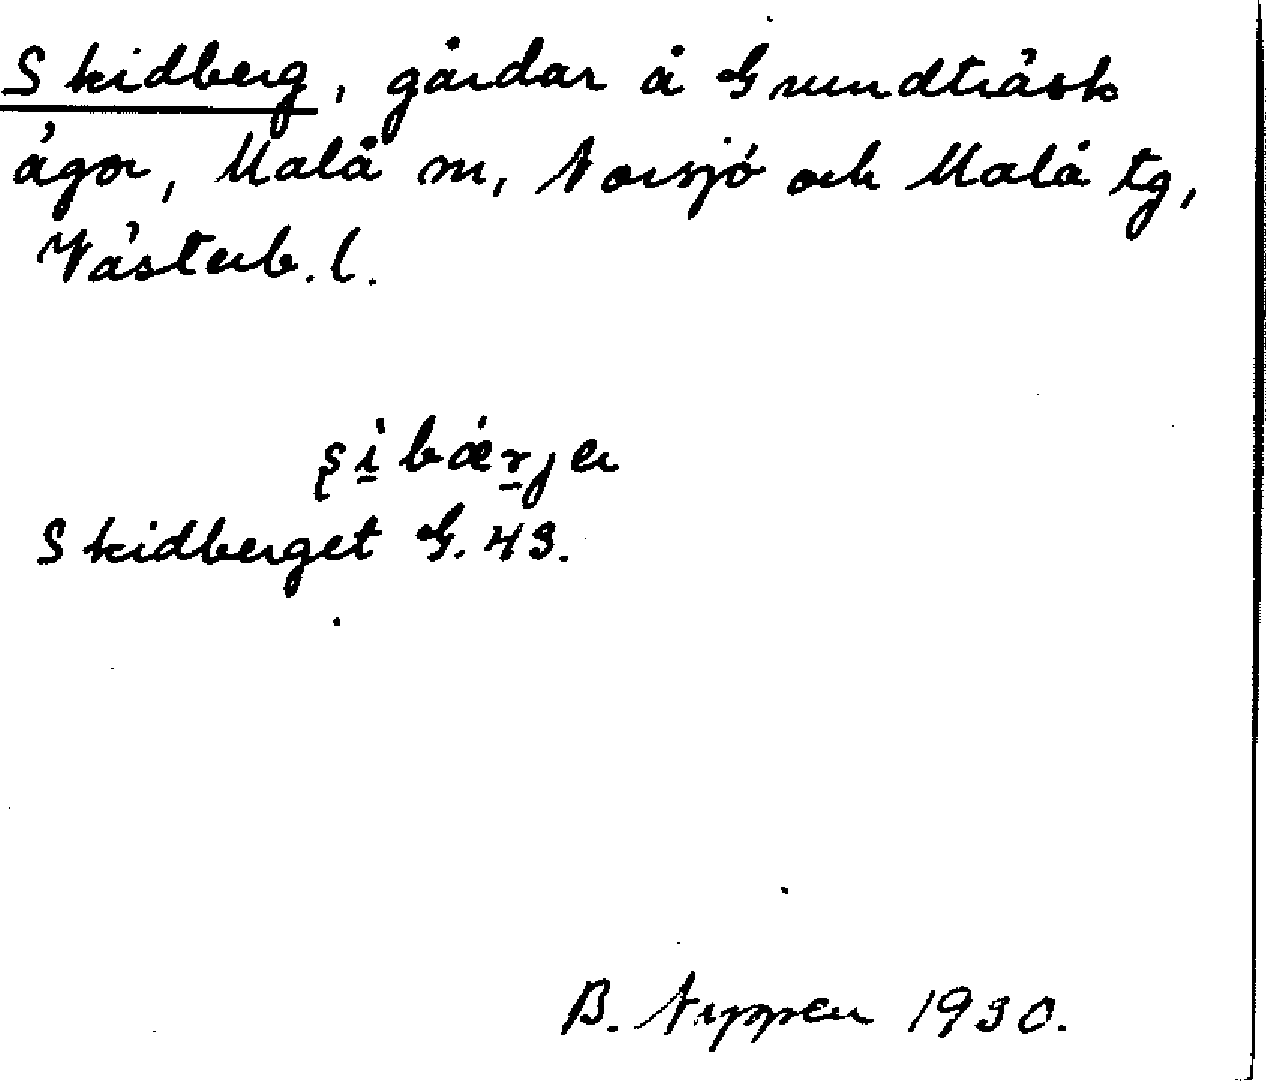 Skidberg, gårdar å Grundträsk
ägor, Malå sn, Norsjö och Malå tg,
Västerb. l.
Skidberget G. 43.
B. 1930.